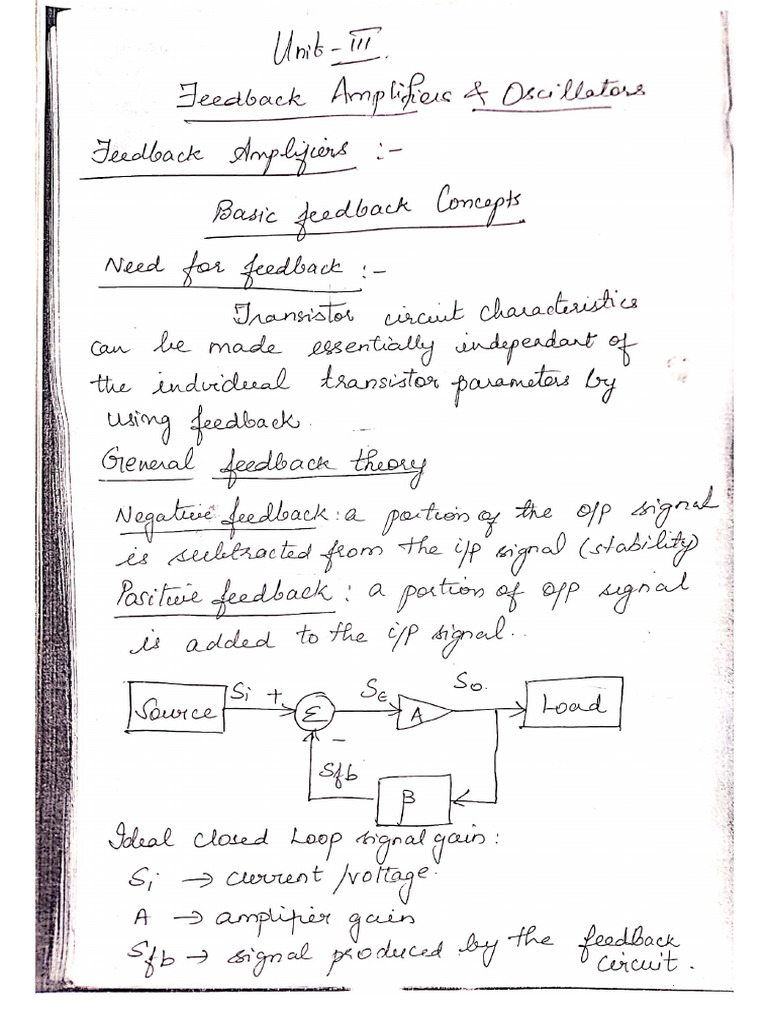 Unit-III.
Feedback Amplifiers & Oscillators
Feedback Amplifiers :-
Basic feedback Concepts
Need for feedback :-
Transistor circuit characteristics
can be made essentially independant of
the individual transistor parameters by
using feedback.
General feedback theory
Negative feedback: a portion of the o/p signal
is subtracted from the i/p signal (stability)
Positive feedback: a portion of o/p signal
is added to the i/p signal..
Source Si + Σ Sε A So. Load
-
Sfb β
Ideal closed Loop signal gain:
Si → current/voltage.
A → amplifier gain
Sfb → signal produced by the feedback
circuit.